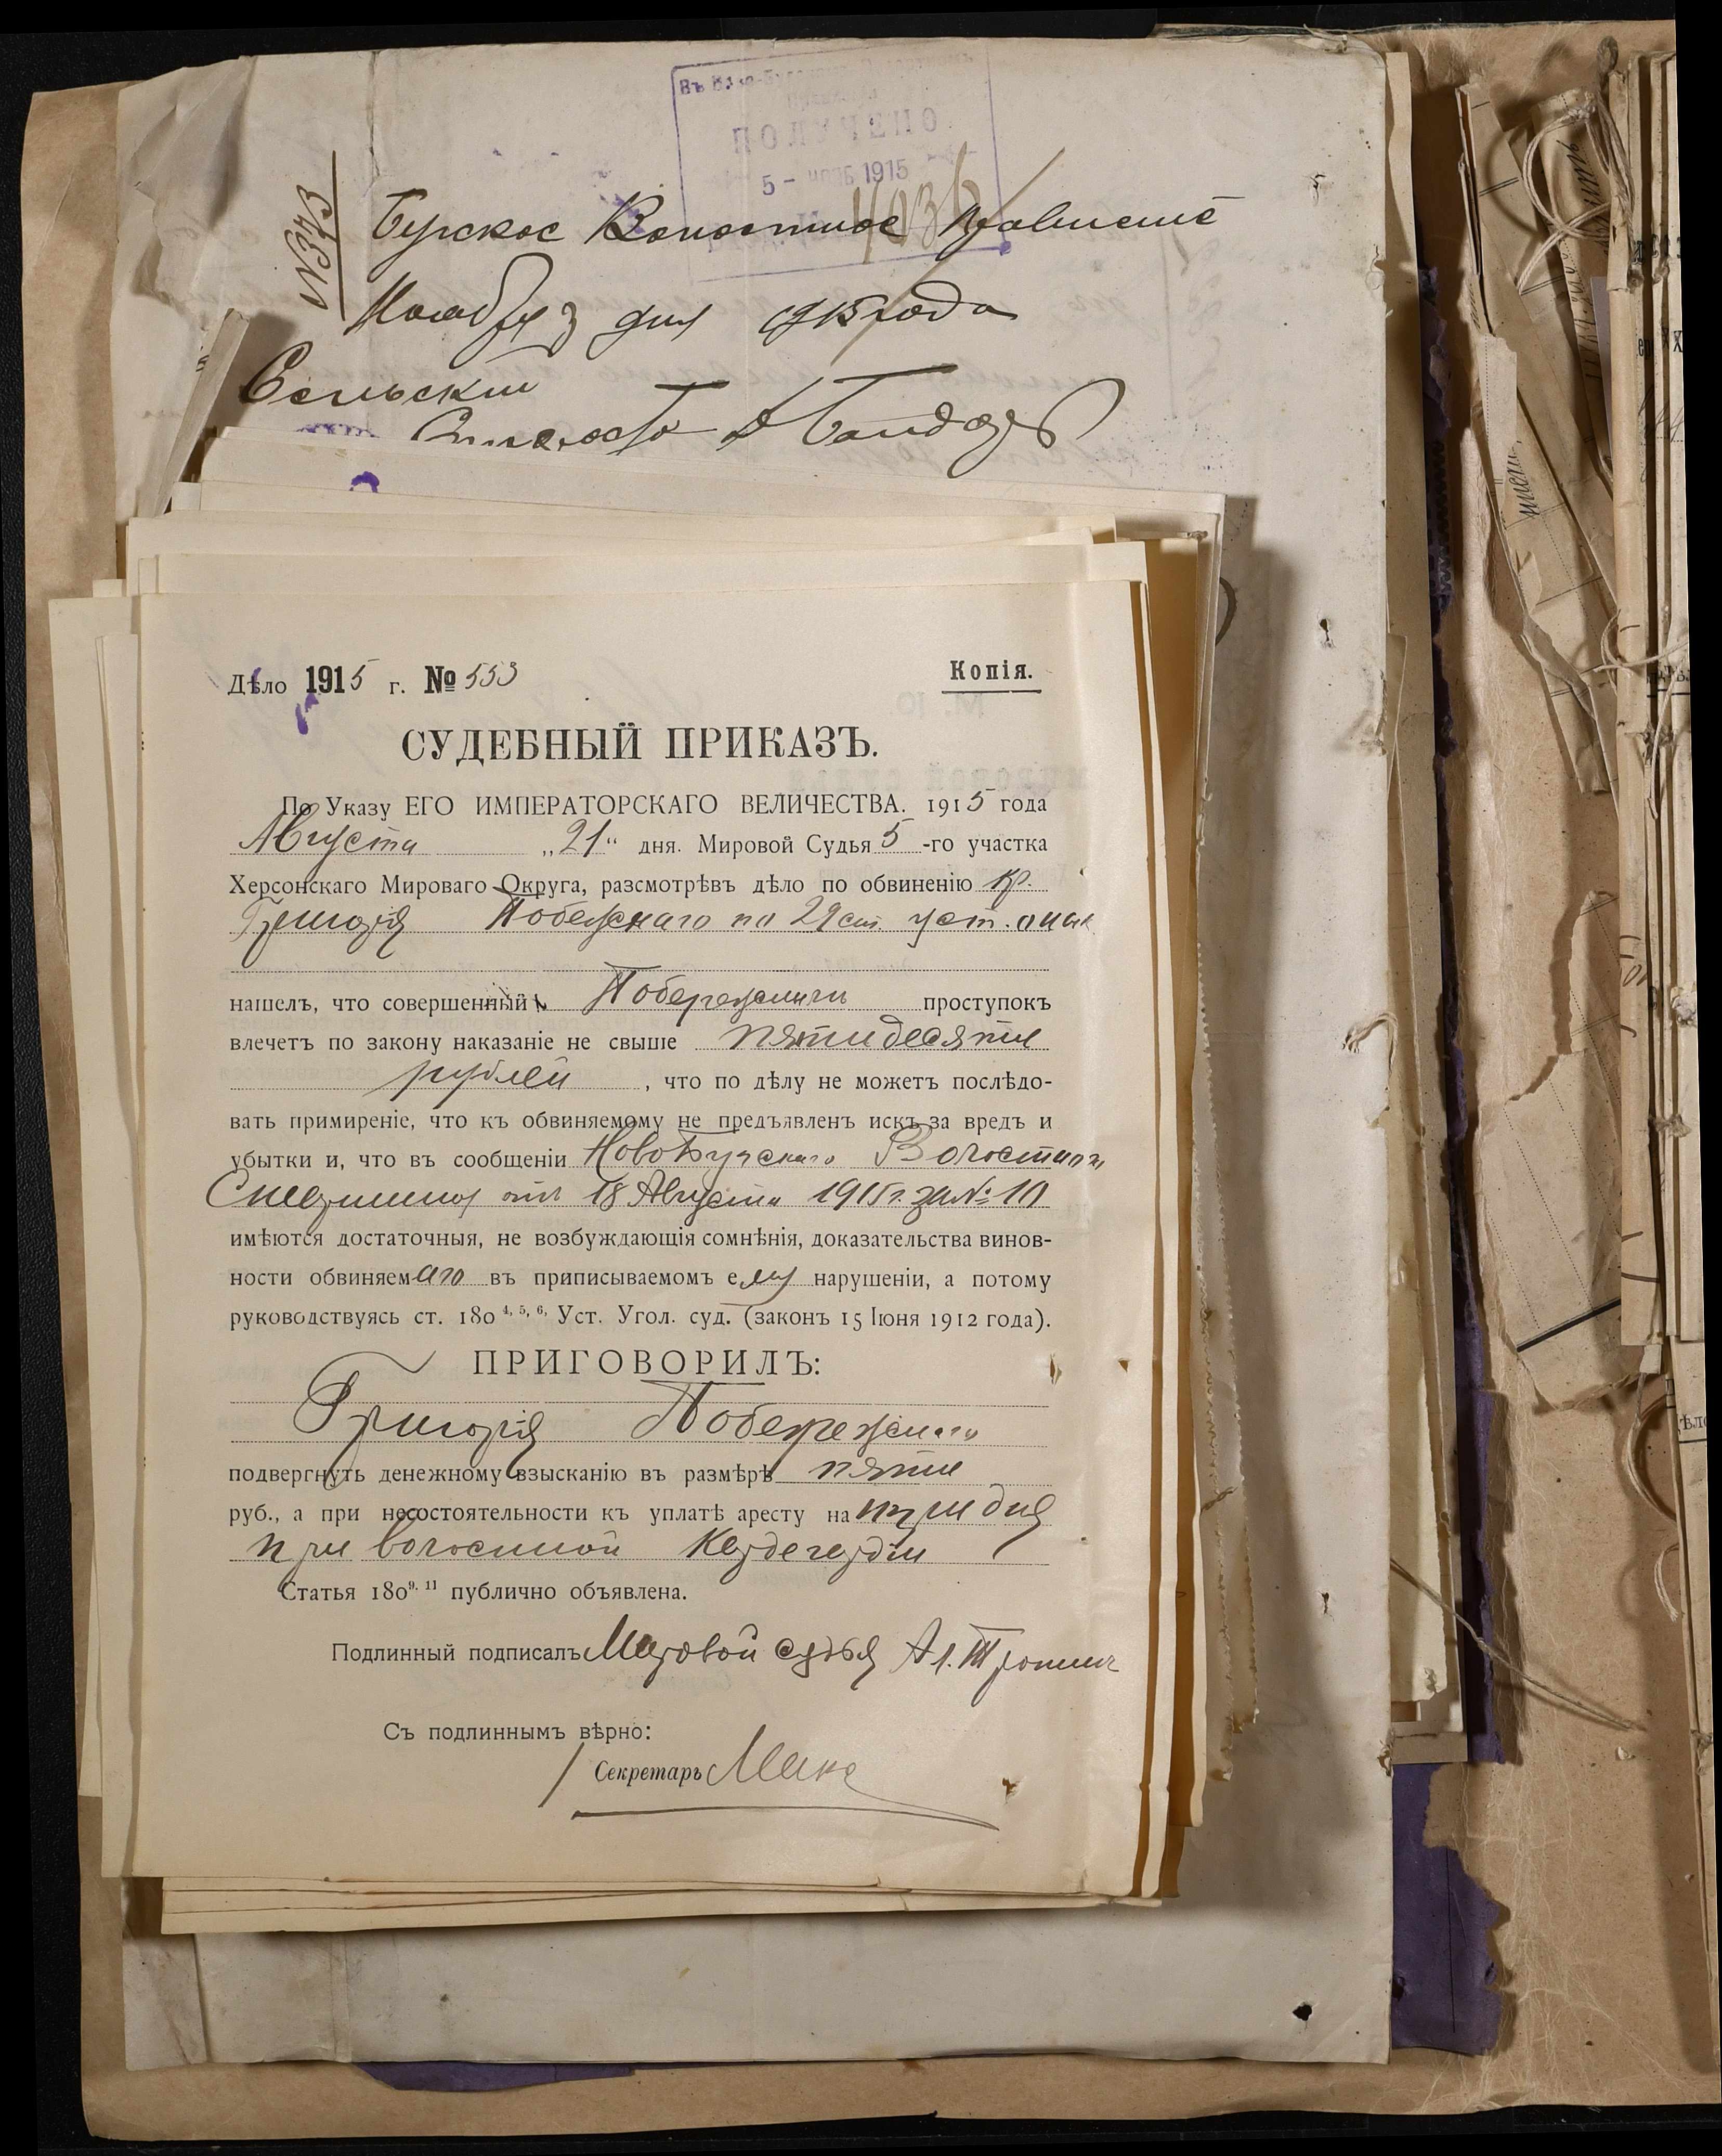 ПОЛУЧЕНО
5 - нояб 1915
№373
Бугское Волостное Правление
Ноября 3 дня 1915 года
Сельский
Староста
Дѣло 1915 г. № 553
Копія.
СУДЕБНЫЙ ПРИКАЗЪ.
По Указу ЕГО ИМПЕРАТОРСКАГО ВЕЛИЧЕСТВА. 1915 года
Августа „21“ дня. Мировой Судья 5-го участка
Херсонскаго Мироваго Округа, разсмотрѣвъ дѣло по обвиненію кр.
Григорія Побережнаго по 29 ст. уст. о нак.
нашелъ, что совершенный Побережнымъ проступокъ
влечетъ по закону наказаніе не свыше пятидесяти
рублей, что по дѣлу не можетъ послѣдо-
вать примиреніе, что къ обвиняемому не предъявленъ искъ за вредъ и
убытки и, что въ сообщеніи НовоБугскаго Волостного
Старшины отъ 18 Августа 1915 г. за №
имѣются достаточныя, не возбуждающія сомнѣнія, доказательства винов-
ности обвиняемаго въ приписываемомъ ему нарушеніи, а потому
руководствуясь ст. 180 4, 5, 6, Уст. Угол. суд. (законъ 15 Іюня 1912 года).
ПРИГОВОРИЛЪ:
Григорія Побережнаго
подвергнуть денежному взысканію въ размѣрѣ пяти
руб., а при несостоятельности къ уплатѣ аресту на три дня
при волостной
Статья 180 9. 11 публично объявлена.
Подлинный подписалъ Мировой судья Ал.
Съ подлиннымъ вѣрно:
Секретарь